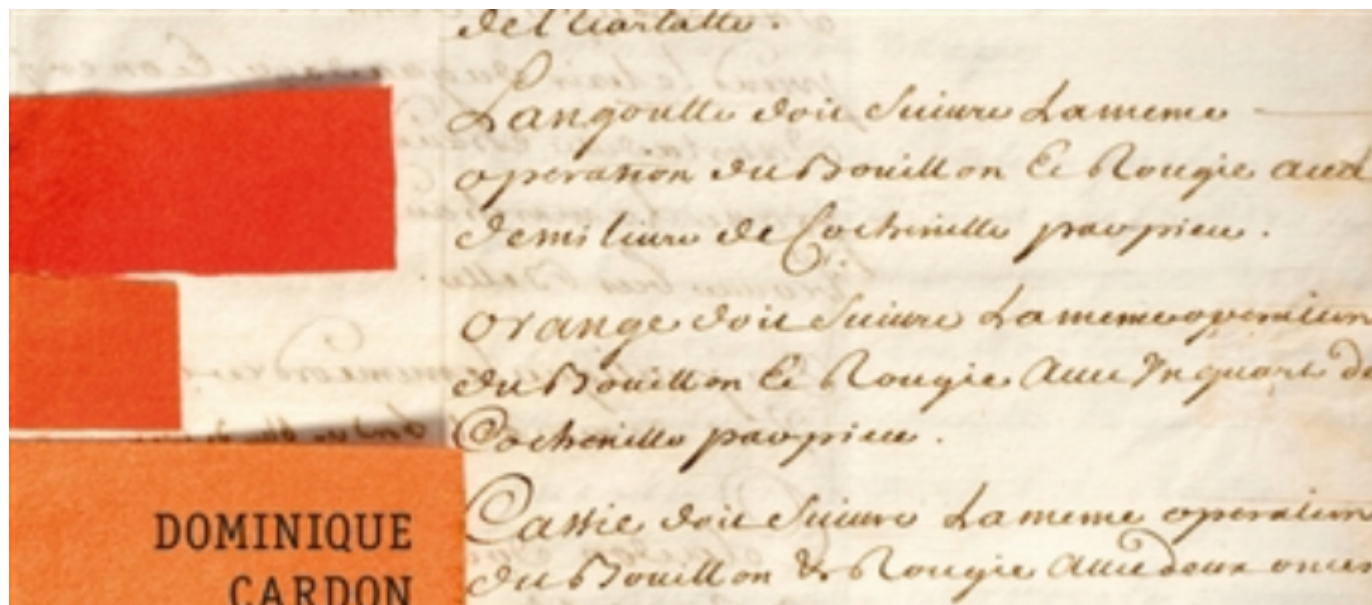 de l'Ecarlatte.
Langoutte doit Suiure Lameme
operation du Bouillon Et Rougie auec
demi liure de Cochenille par piece.
orange doit Suiure Lameme operation
du Bouillon Et Rougie Auec Un quart de
Cochenille par piece.
Cassie doit Suiure Lameme operation
du Bouillon & Rougie Auec deux onces
DOMINIQUE
CARDON